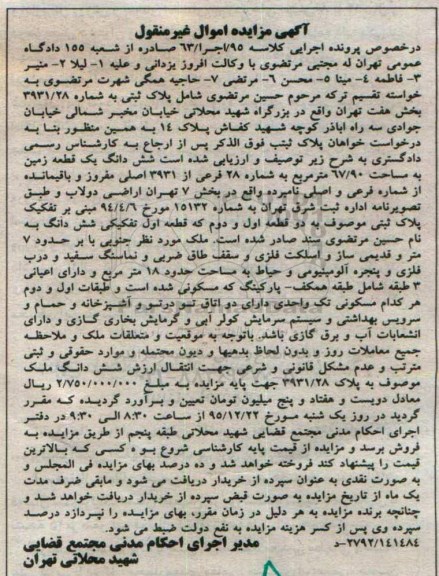 آگهی مزایده اموال غیرمنقول
درخصوص پرونده اجرایی کلاسه ۹۵/اجرا/۶۳ صادره از شعبه ۱۵۵ دادگاه
عمومی تهران له مجتبی مرتضوی با وکالت افروز یزدانی و علیه ۱- لیلا ۲- منیر
۳- فاطمه ۴- مینا ۵- محسن ۶- مرتضی ۷- حاجیه همگی شهرت مرتضوی به
خواسته تقسیم ترکه مرحوم حسین مرتضوی شامل پلاک ثبتی به شماره ۳۹۳۱/۲۸
بخش هفت تهران واقع در بزرگراه شهید محلاتی خیابان مخبر شمالی خیابان
جوادی سه راه اباذر کوچه شهید کفاش پلاک ۱۴ به همین منظور بنا به
درخواست خواهان پلاک ثبتب فوق الذکر پس از ارجاع به کارشناس رسمی
دادگستری به شرح زیر توصیف و ارزیابی شده است شش دانگ یک قطعه زمین
به مساحت ۶۷/۹۰ مترمربع به شماره ۲۸ فرعی از ۳۹۳۱ اصلی مفروز و باقیمانده
از شماره فرعی و اصلی نامبرده واقع در بخش ۷ تهران اراضی دولاب و طبق
تصویرنامه اداره ثبت شرق تهران به شماره ۱۵۱۳۲ مورخ ۹۴/۴/۶ مبنی بر تفکیک
پلاک ثبتی موصوف به دو قطعه اول و دوم که قطعه اول تفکیکی شش دانگ به
نام حسین مرتضوی سند صادر شده است. ملک مورد نظر جنوبی با بر حدود ۷
متر و قدیمی ساز و اسکلت فلزی و سقف طاق ضربی و نماسنگ سفید و درب
فلزی و پنجره آلومینیومی و حیاط به مساحت حدود ۱۸ متر مربع و دارای اعیانی
۳ طبقه شامل طبقه همکف- پارکینگ که مسکونی شده است و طبقات اول و دوم
هر کدام مسکونی تک واحدی دارای دو اتاق تو درتو و آشپزخانه و حمام و
سرویس بهداشتی و سیستم سرمایش کولر آبی و گرمایش بخاری گازی و دارای
انشعابات آب و برق گازی باشد. باتوجه به موقعیت و متعلقات ملک و ملاحظه
جمیع معاملات روز و بدون لحاظ بدهیها و دیون محتمله و موارد حقوقی و ثبتی
مترتب و عدم مشکل قانونی و شرعی جهت انتقال ارزش شش دانگ ملک
موصوف به پلاک ۳۹۳۱/۲۸ جهت پایه مزایده به مبلغ ۲/۷۵۰/۰۰۰/۰۰۰ ریال
معادل دویست و هفتاد و پنج میلیون تومان تعیین و برآورد گردیده که مقرر
گردید در روز یک شنبه مورخ ۹۵/۱۲/۲۲ از ساعت ۸:۳۰ الی ۹:۳۰ در دفتر
اجرای احکام مدنی مجتمع قضایی شهید محلاتی طبقه پنجم از طریق مزایده به
فروش برسد و مزایده از قیمت پایه کارشناسی شروع بو ه کسی که بالاترین
قیمت را پیشنهاد کند فروخته خواهد شد و ده درصد بهای مزایده فی المجلس و
به صورت نقدی به عنوان سپرده از خریدار دریافت می شود و مابقی ضرف مدت
یک ماه از تاریخ مزایده به صورت قبض سپرده از خریدار دریافت خواهد شد و
چنانچه برنده مزایده به هر دلیل در زمان مقرر، بهای مزایده را نپردازد درصد
سپرده وی پس از کسر هزینه مزایده به نفع دولت ضبط می شود.
مدیر اجرای احکام مدنی مجتمع قضایی
۲۷۹۲/۱۴۱۴۸۴-د
شهید محلاتی تهران